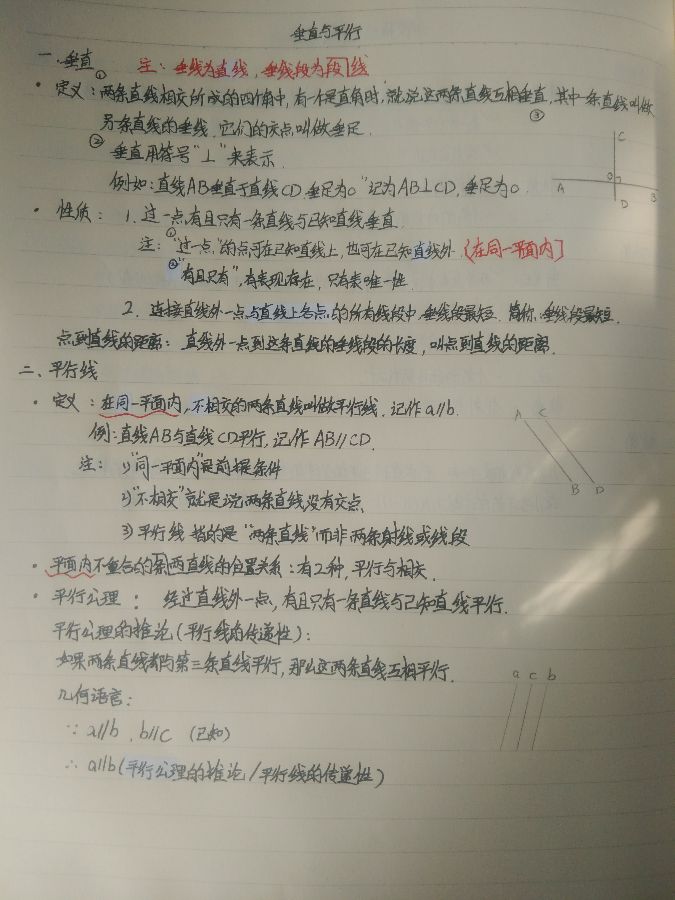 垂直与平行
一.垂直 注：垂线为直线，垂线段为段线
· 定义：①两条直线相交所成的四个角中，有一个是直角时，就说这两条直线互相垂直，其中一条直线叫做
另一条直线的垂线，它们的交点叫做垂足.
② 垂直用符号"⊥"来表示.
③
例如：直线AB垂直于直线CD，垂足为O"记为AB⊥CD，垂足为O.
C
A O B
D
· 性质：1. 过一点有且只有一条直线与已知直线垂直.
注：①"过一点"的点可在已知直线上，也可在已知直线外.（在同一平面内]
②"有且只有"，有表现存在，只有表唯一性.
2. 连接直线外一点与直线上各点的所有线段中，垂线段最短. 简称：垂线段最短.
点到直线的距离：直线外一点到这条直线的垂线段的长度，叫点到直线的距离.
二、平行线
· 定义：在同一平面内，不相交的两条直线叫做平行线. 记作a∥b.
例：直线AB与直线CD平行，记作AB∥CD.
A C
B D
注：1)"同一平面内"是前提条件
2)"不相交"就是说两条直线没有交点
3)平行线指的是"两条直线"而非两条射线或线段
· 平面内不重合的两直线的位置关系：有2种，平行与相交.
· 平行公理：经过直线外一点，有且只有一条直线与已知直线平行.
平行公理的推论（平行线的传递性）：
如果两条直线都与第三条直线平行，那么这两条直线互相平行.
a c b
几何语言：
∵ a∥b，b∥c （已知）
∴ a∥b（平行公理的推论/平行线的传递性）